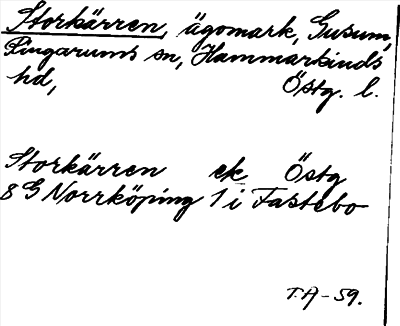 Storkärren, ägomark, Gusum,
Ringarums sn, Hammarkinds
hd, Östg. l.
Storkärren ek Östg
8 G Norrköping 1 i Fastebo
T.A-59.